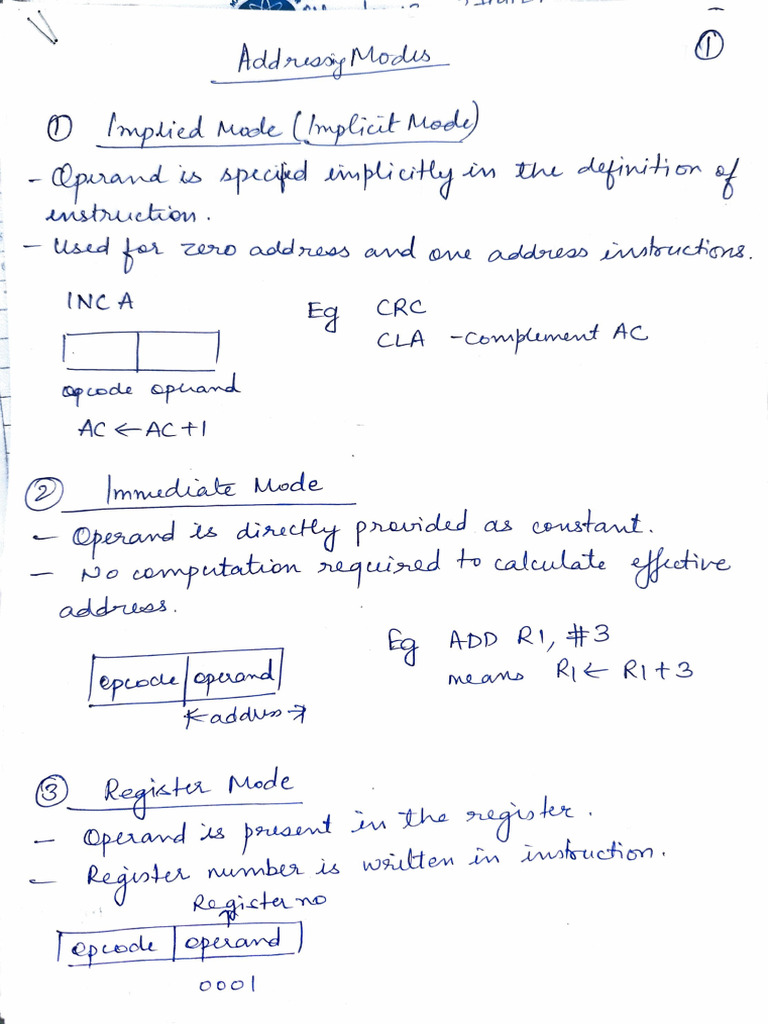 ①
Addressing Modes
① Implied Mode (Implicit Mode)
- Operand is specified implicitly in the definition of
instruction.
- Used for zero address and one address instructions.
INC A
Eg CRC
CLA - Complement AC
opcode operand
AC ← AC + 1
② Immediate Mode
- Operand is directly provided as constant.
- No computation required to calculate effective
address.
Eg ADD R1, #3
means R1 ← R1 + 3
opcode operand
← address →
③ Register Mode
- Operand is present in the register.
- Register number is written in instruction.
Register no
opcode operand
0001